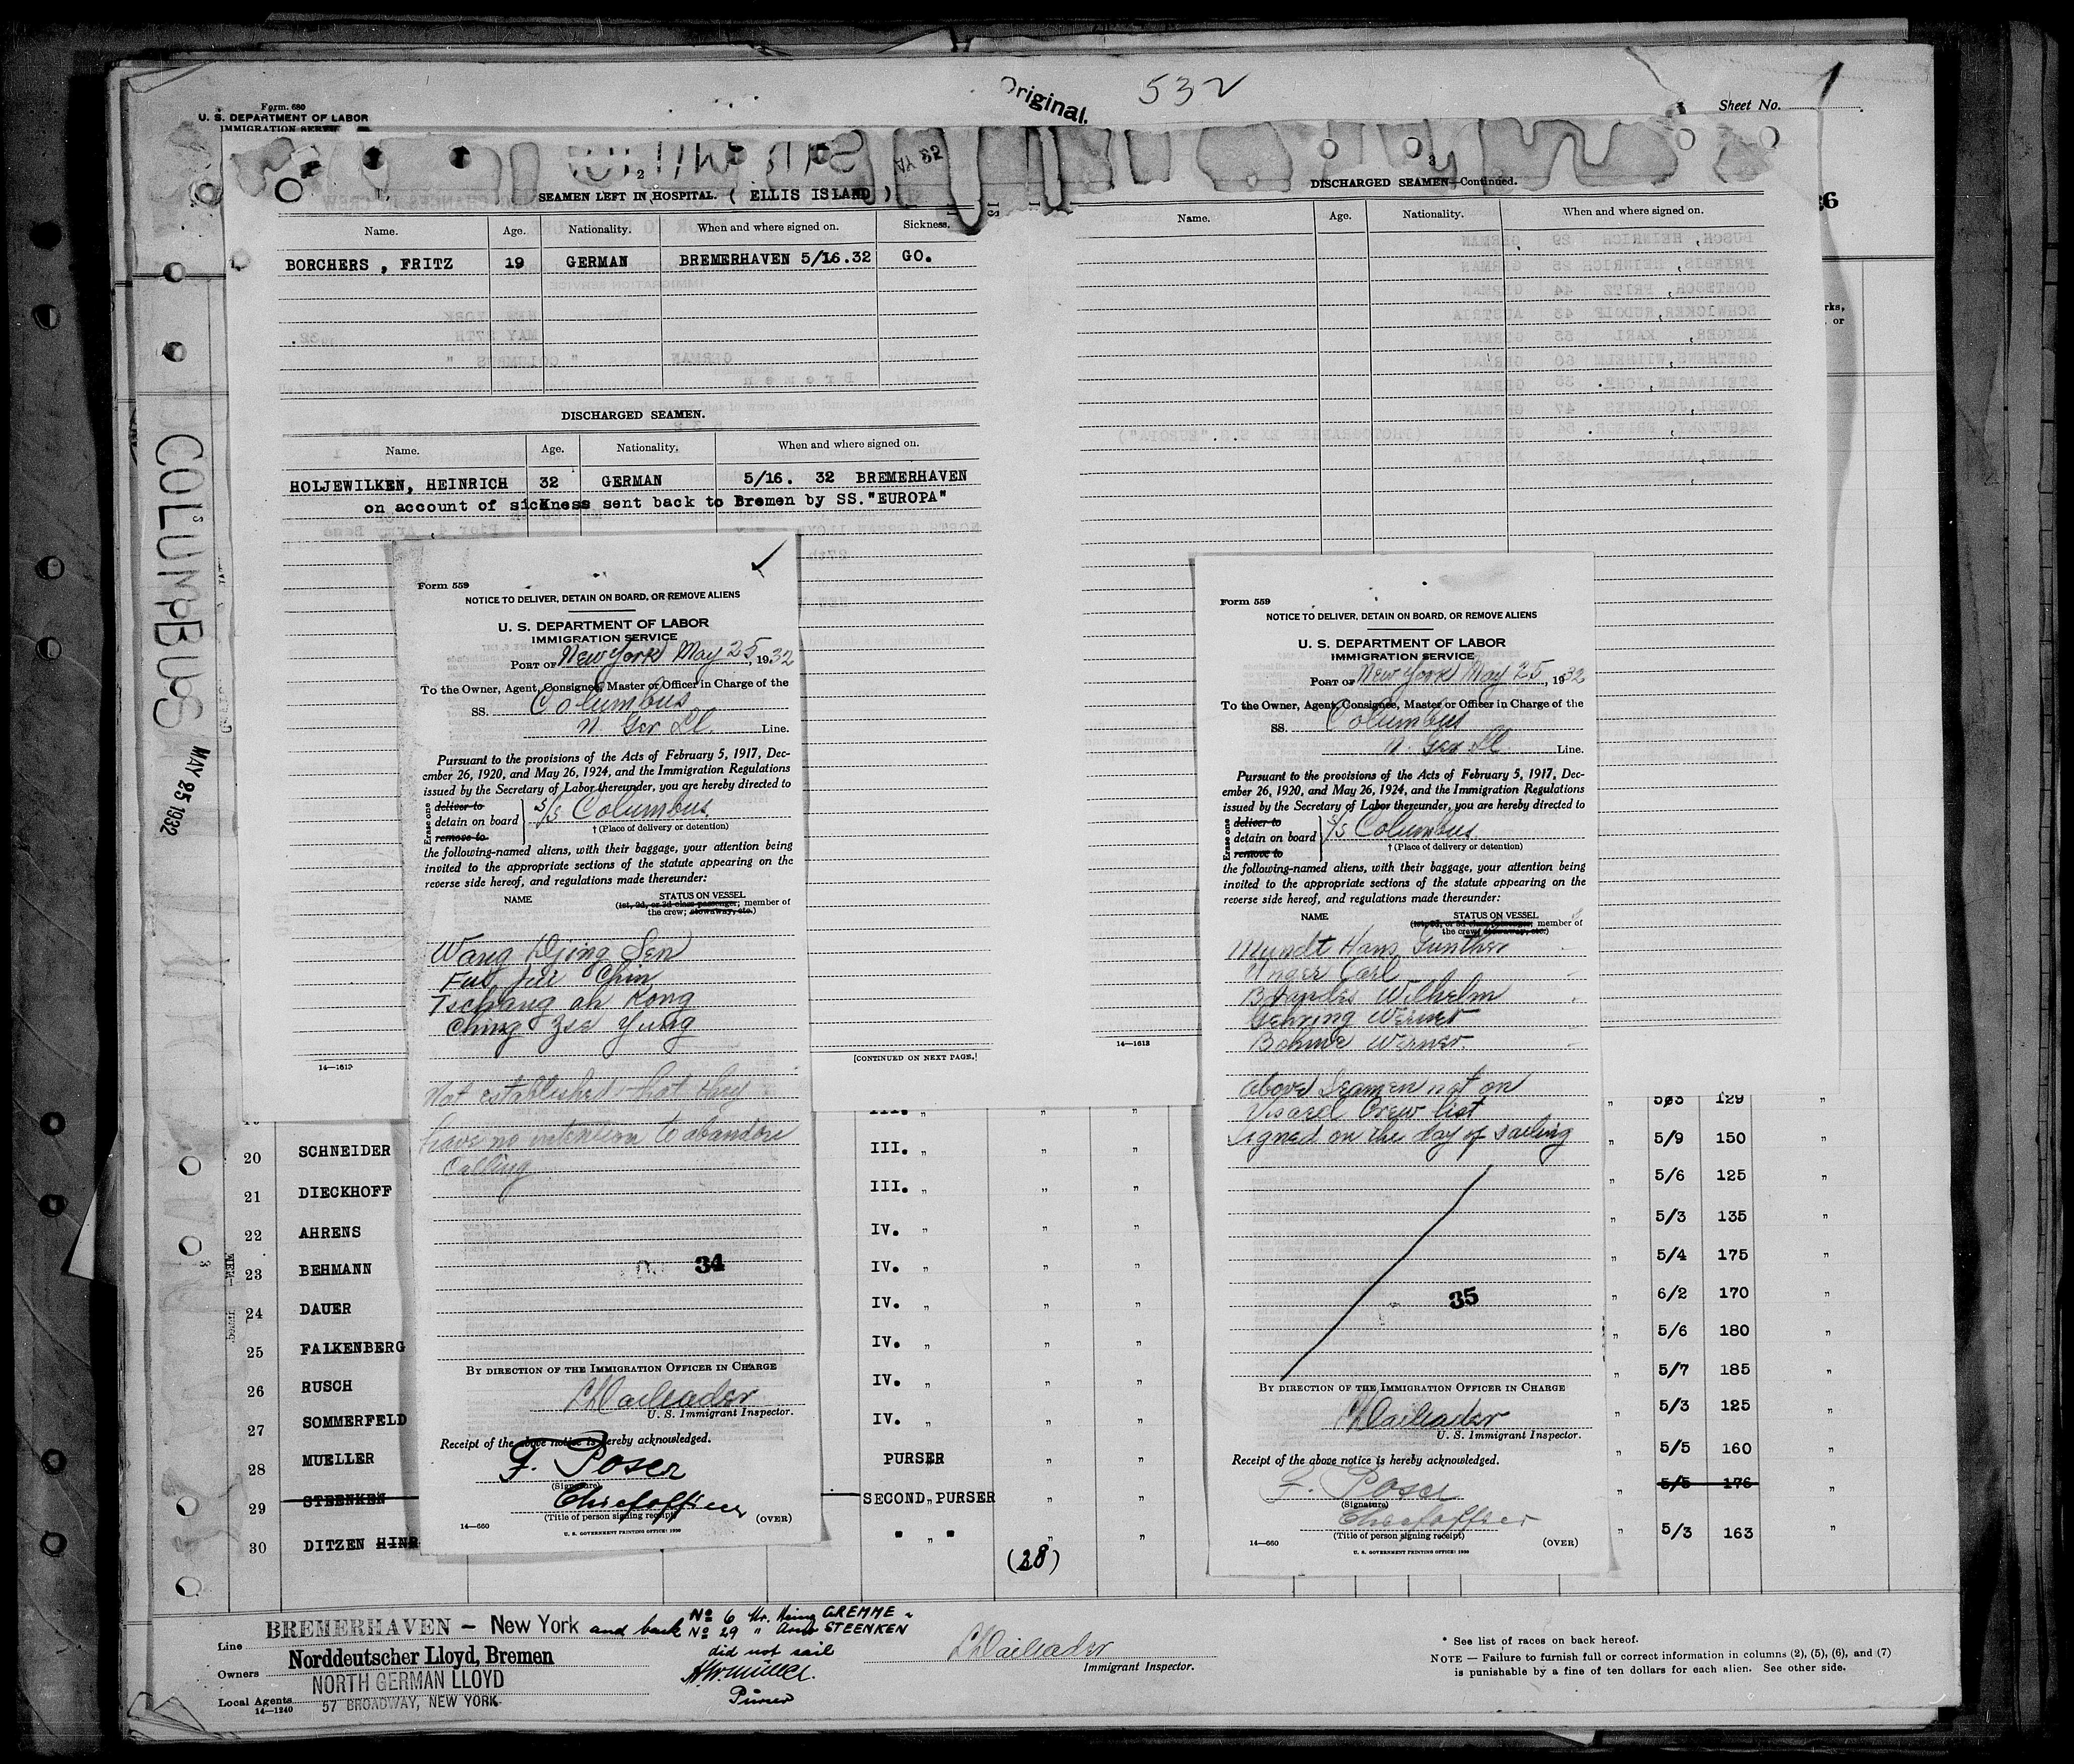 Original.
532
Sheet No. 1
Form. 680
U. S. DEPARTMENT OF LABOR
IMMIGRATION
COLUMBUS
MAY 25 1932
2
SEAMEN LEFT IN HOSPITAL. ( ELLIS ISLAND )
Name. Age. Nationality. When and where signed on. Sickness.
BORCHERS , FRITZ 19 GERMAN BREMERHAVEN 5/16.32 GO.
DISCHARGED SEAMEN.
Name. Age. Nationality. When and where signed on.
HOLJEWILKEN, HEINRICH 32 GERMAN 5/16. 32 BREMERHAVEN
on account of sickness sent back to Bremen by SS."EUROPA"
[CONTINUED ON NEXT PAGE.]
3
DISCHARGED SEAMEN—Continued.
Name. Age. Nationality. When and where signed on.
14—1613
Form 559
NOTICE TO DELIVER, DETAIN ON BOARD, OR REMOVE ALIENS
U. S. DEPARTMENT OF LABOR
IMMIGRATION SERVICE
PORT OF New York May 25, 1932
To the Owner, Agent, Consignee, Master or Officer in Charge of the
SS. Columbus
N. Ger Ll. Line.
Pursuant to the provisions of the Acts of February 5, 1917, Dec-
ember 26, 1920, and May 26, 1924, and the Immigration Regulations
issued by the Secretary of Labor thereunder, you are hereby directed to
Erase one
deliver to
detain on board S/S Columbus
remove to
† (Place of delivery or detention)
the following-named aliens, with their baggage, your attention being
invited to the appropriate sections of the statute appearing on the
reverse side hereof, and regulations made thereunder:
NAME STATUS ON VESSEL
(1st, 2d, or 3d class passenger; member of
the crew; stowaway, etc.)
Wang Djong Sen
Chin
Tschang ah Kong
Ching Zse Yung
Not established that they
have no intention to abandon
Calling
34
BY DIRECTION OF THE IMMIGRATION OFFICER IN CHARGE
U. S. Immigrant Inspector.
Receipt of the above notice is hereby acknowledged.
F. Poser
(Signature)
Chiefofficer
(Title of person signing receipt)
14—660 U. S. GOVERNMENT PRINTING OFFICE: 1930 (OVER)
Form 559
NOTICE TO DELIVER, DETAIN ON BOARD, OR REMOVE ALIENS
U. S. DEPARTMENT OF LABOR
IMMIGRATION SERVICE
PORT OF New York May 25, 1932
To the Owner, Agent, Consignee, Master or Officer in Charge of the
SS. Columbus
N. Ger Ll Line.
Pursuant to the provisions of the Acts of February 5, 1917, Dec-
ember 26, 1920, and May 26, 1924, and the Immigration Regulations
issued by the Secretary of Labor thereunder, you are hereby directed to
Erase one
deliver to
detain on board S/S Columbus
remove to
† (Place of delivery or detention)
the following-named aliens, with their baggage, your attention being
invited to the appropriate sections of the statute appearing on the
reverse side hereof, and regulations made thereunder:
NAME STATUS ON VESSEL
(1st, 2d, or 3d class passenger; member of
the crew; stowaway, etc.)
Mundt Hans Gunther
Unger Carl
Brandes Wilhelm
Gehring Werner
Bohme Werner.
above Seamen not on
Visaed Crew list
signed on the day of sailing
35
BY DIRECTION OF THE IMMIGRATION OFFICER IN CHARGE
U. S. Immigrant Inspector.
Receipt of the above notice is hereby acknowledged.
F. Poser
(Signature)
Chiefofficer
(Title of person signing receipt)
14—660 (OVER)
5/3 129
20 SCHNEIDER III. " " " " 5/9 150 "
21 DIECKHOFF III. " " " " 5/6 125 "
22 AHRENS IV. " " " " 5/3 135 "
23 BEHMANN IV. " " " " 5/4 175 "
24 DAUER IV. " " " " 6/2 170 "
25 FALKENBERG IV. " " " " 5/6 180 "
26 RUSCH IV. " " " " 5/7 185 "
27 SOMMERFELD IV. " " " " 5/3 125 "
28 MUELLER PURSER " " " 5/5 160 "
29 STEENKEN SECOND PURSER " " " 5/5 176
30 DITZEN HINR " " " " " 5/3 163 "
(28)
Line BREMERHAVEN – New York and back
Owners Norddeutscher Lloyd, Bremen
Local Agents NORTH GERMAN LLOYD
57 BROADWAY, NEW YORK
14—1240
No 6 Hr. GREMME
No 29 " STEENKEN
did not sail
Purser
Immigrant Inspector.
* See list of races on back hereof.
NOTE — Failure to furnish full or correct information in columns (2), (5), (6), and (7)
is punishable by a fine of ten dollars for each alien. See other side.